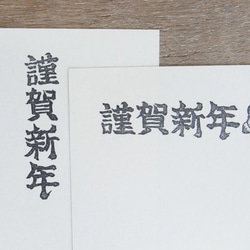 謹賀新年
謹賀新年&